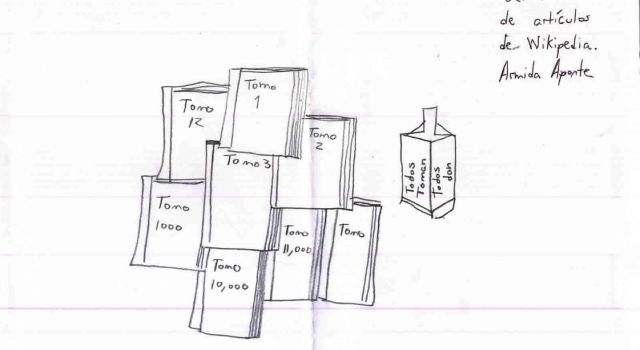 de artículos
de Wikipedia.
Armida Aponte
Tomo
1
Tomo
12
Tomo
2
Tomo 3
Tomo
1000
Tomo
11,000
Tomo
Tomo
10,000
Todos
Toman
Todos
dan